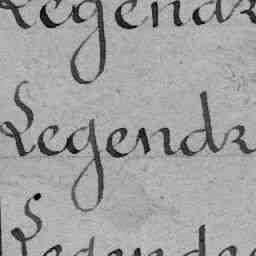 Legendr
Legendr
Legendr